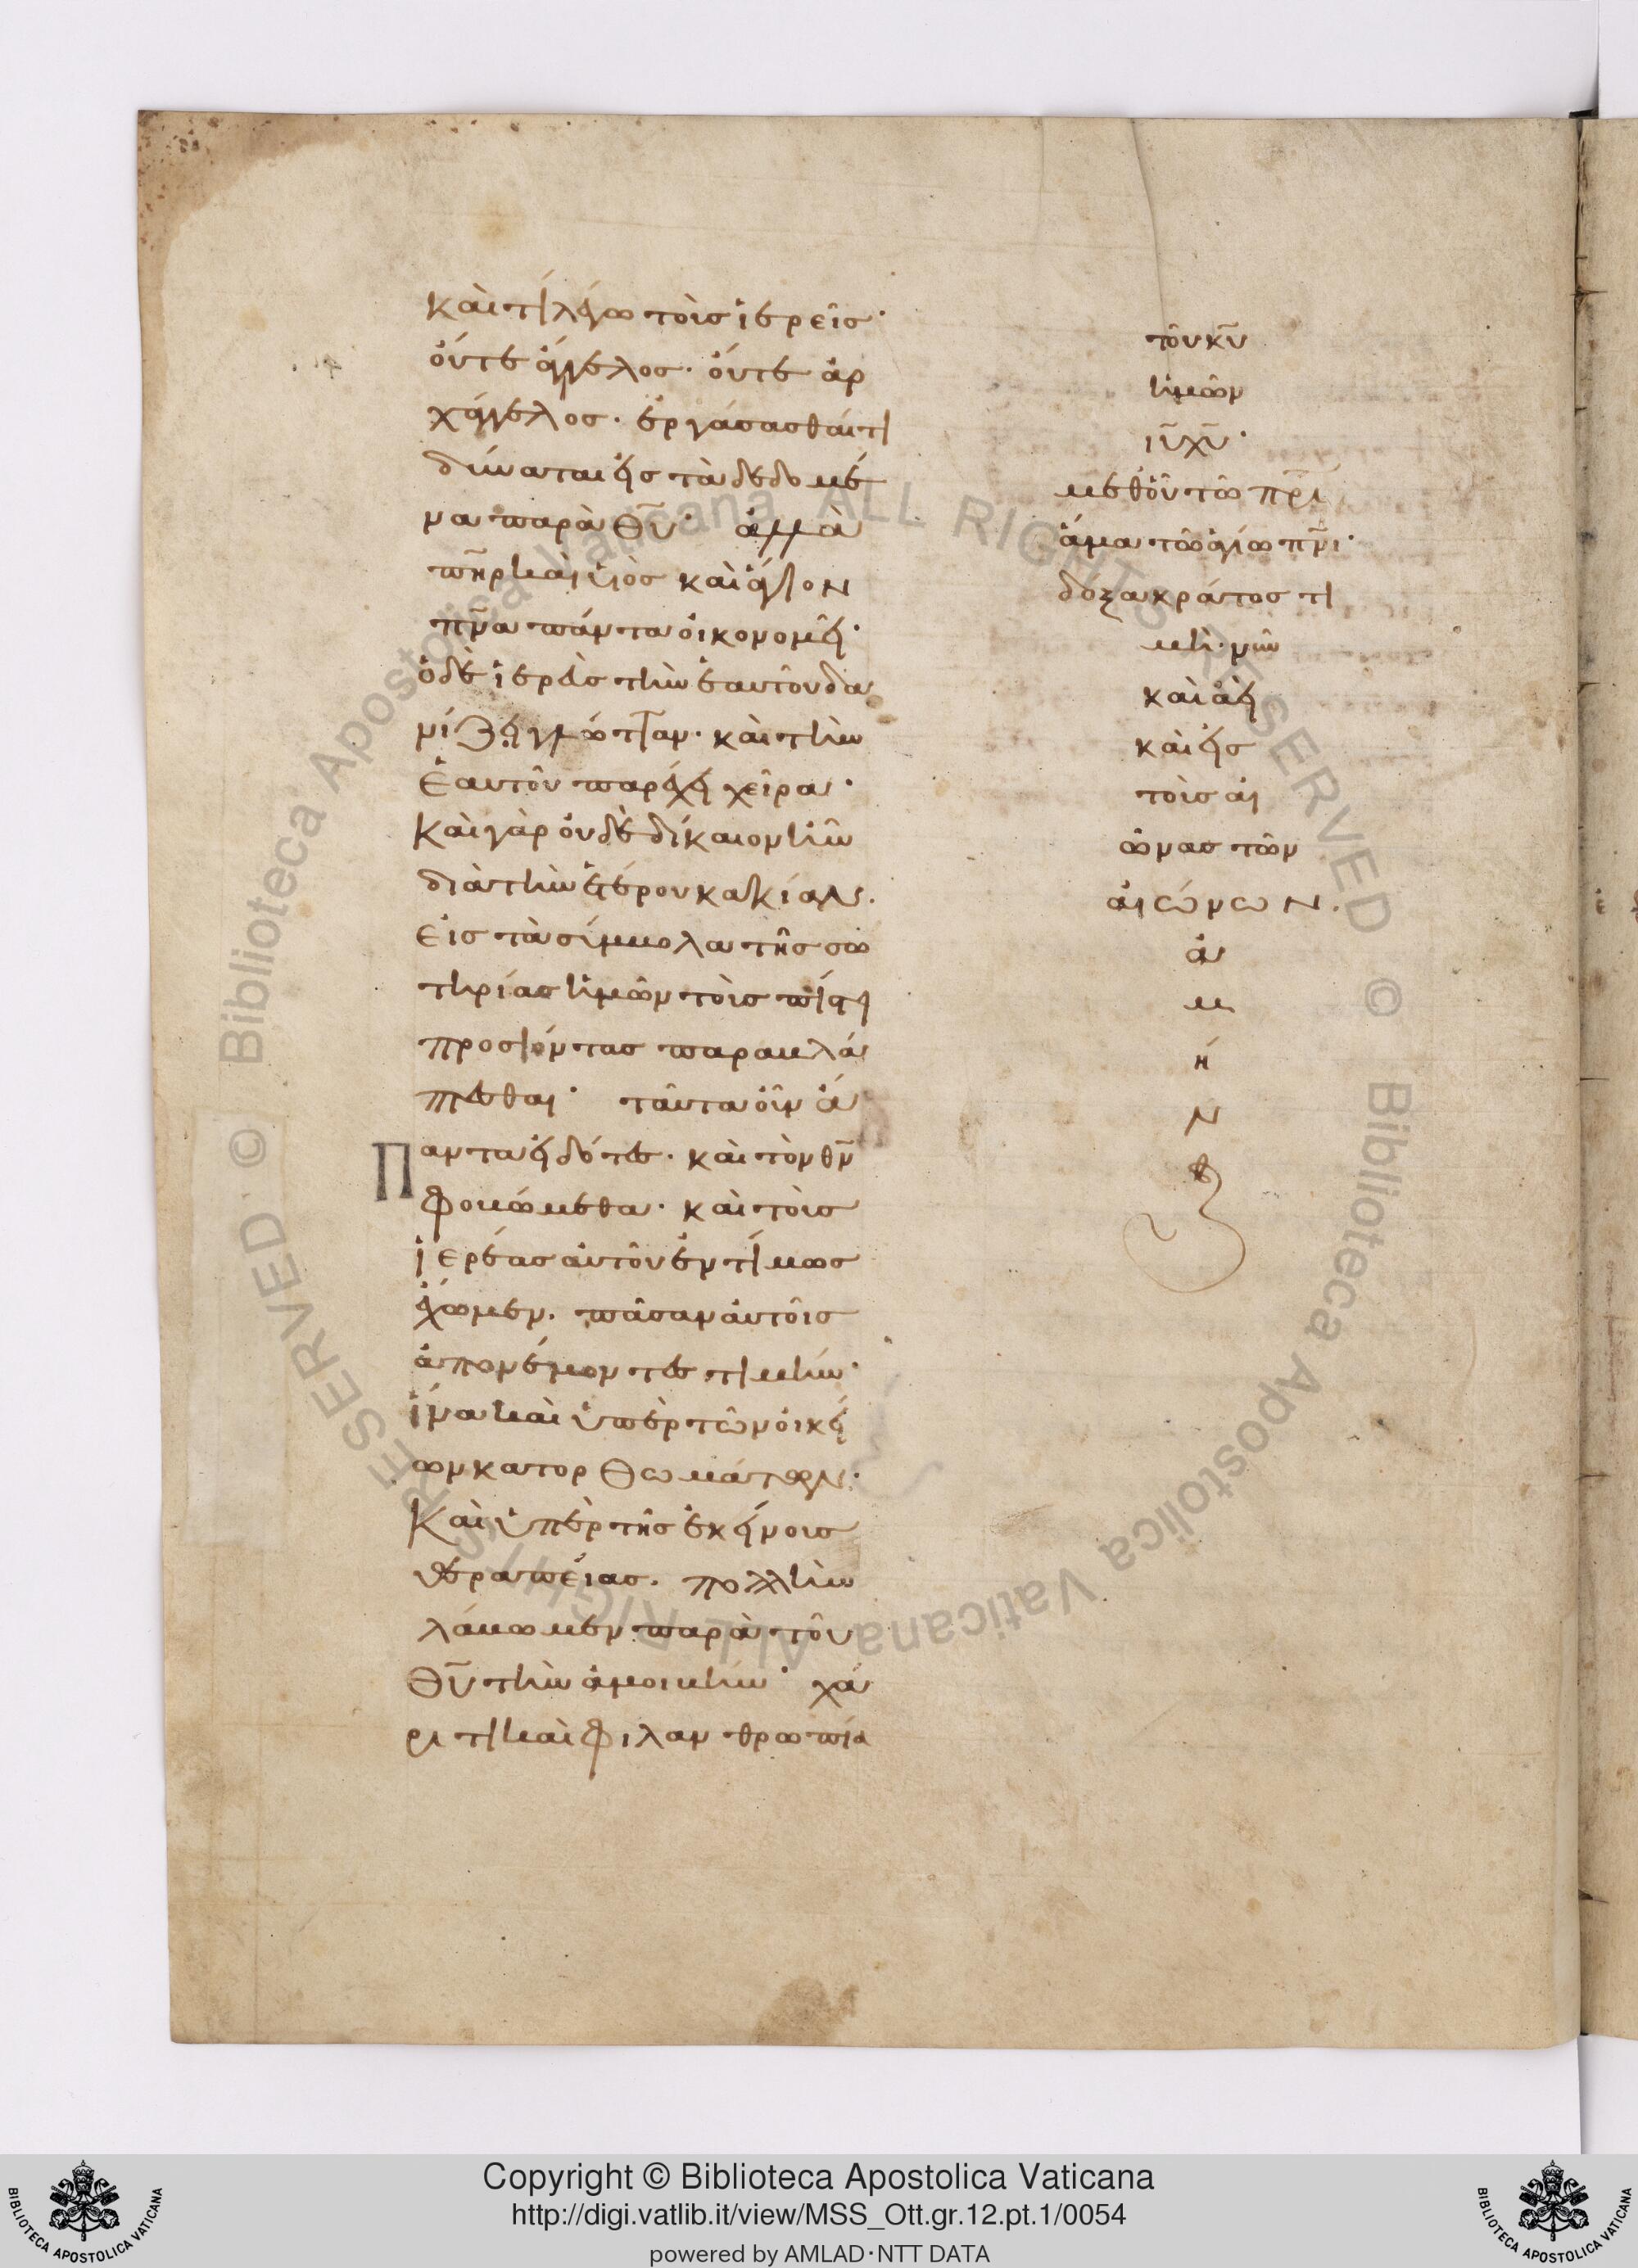 καὶ τί λέγω τοὺς ἱερεῖς·
οὔτε ἄγγελος· οὔτε ἀρ
χάγγελος· ἐργάσασθαί τι
δύναται εἰς τὰ δεδομέ
να παρὰ θ̅υ̅· ἀλλὰ
π̅η̅ρ καὶ υἱὸς καὶ ἅγιον
π̅ν̅α πάντα οἰκονομεῖ·
ὁ δὲ ἱερεὺς τὴν ἑαυτοῦ δα
νίζει γλῶτταν· καὶ τὴν
ἑαυτοῦ παρέχει χεῖρα·
Καὶ γὰρ οὐδὲ δίκαιον ἦν
διὰ τὴν ἑτέρου κακίαν.
εἰς τὰ σύμβολα τῆς σω
τηρίας ἡμῶν τοὺς πίστει
προσιόντας παραβλά
πτεσθαι· ταῦτα οὖν ἅ
Παντα εἰδότες· καὶ τὸν θ̅ν̅
φοβώμεθα· καὶ τοὺς
ἱερέας αὐτοῦ ἐντίμως
ἔχωμεν. πᾶσαν αὐτοῖς
ἀπονέμοντες τιμήν·
ἵνα καὶ ὑπὲρ τῶν οἰκεί
ων κατορθωμάτων·
Καὶ ὑπὲρ τῆς ἐκείνοις
θεραπείας. πολλὴν
λάβωμεν παρὰ τοῦ
θ̅υ̅ τὴν ἀμοιβήν· χά
ριτι καὶ φιλανθρωπία
τοῦ κ̅υ̅
ἡμῶν
ι̅υ̅ χ̅υ̅·
μεθ οὗ τῶ π̅ρ̅ι
ἅμα τῶ ἁγίω π̅ν̅ι·
δόξα κράτος τι
μὴ· νῦν
καὶ ἀεὶ
καὶ εἰς
τοὺς αἰ
ῶνας τῶν
αἰώνων.
ἀ
μ
ή
ν
Copyright © Biblioteca Apostolica Vaticana
http://digi.vatlib.it/view/MSS_Ott.gr.12.pt.1/0054
powered by AMLAD·NTT DATA
BIBLIOTECA APOSTOLICA VATICANA
BIBLIOTECA APOSTOLICA VATICANA
© Biblioteca Apostolica Vaticana ALL RIGHTS RESERVED © Biblioteca Apostolica Vaticana ALL RIGHTS RESERVED